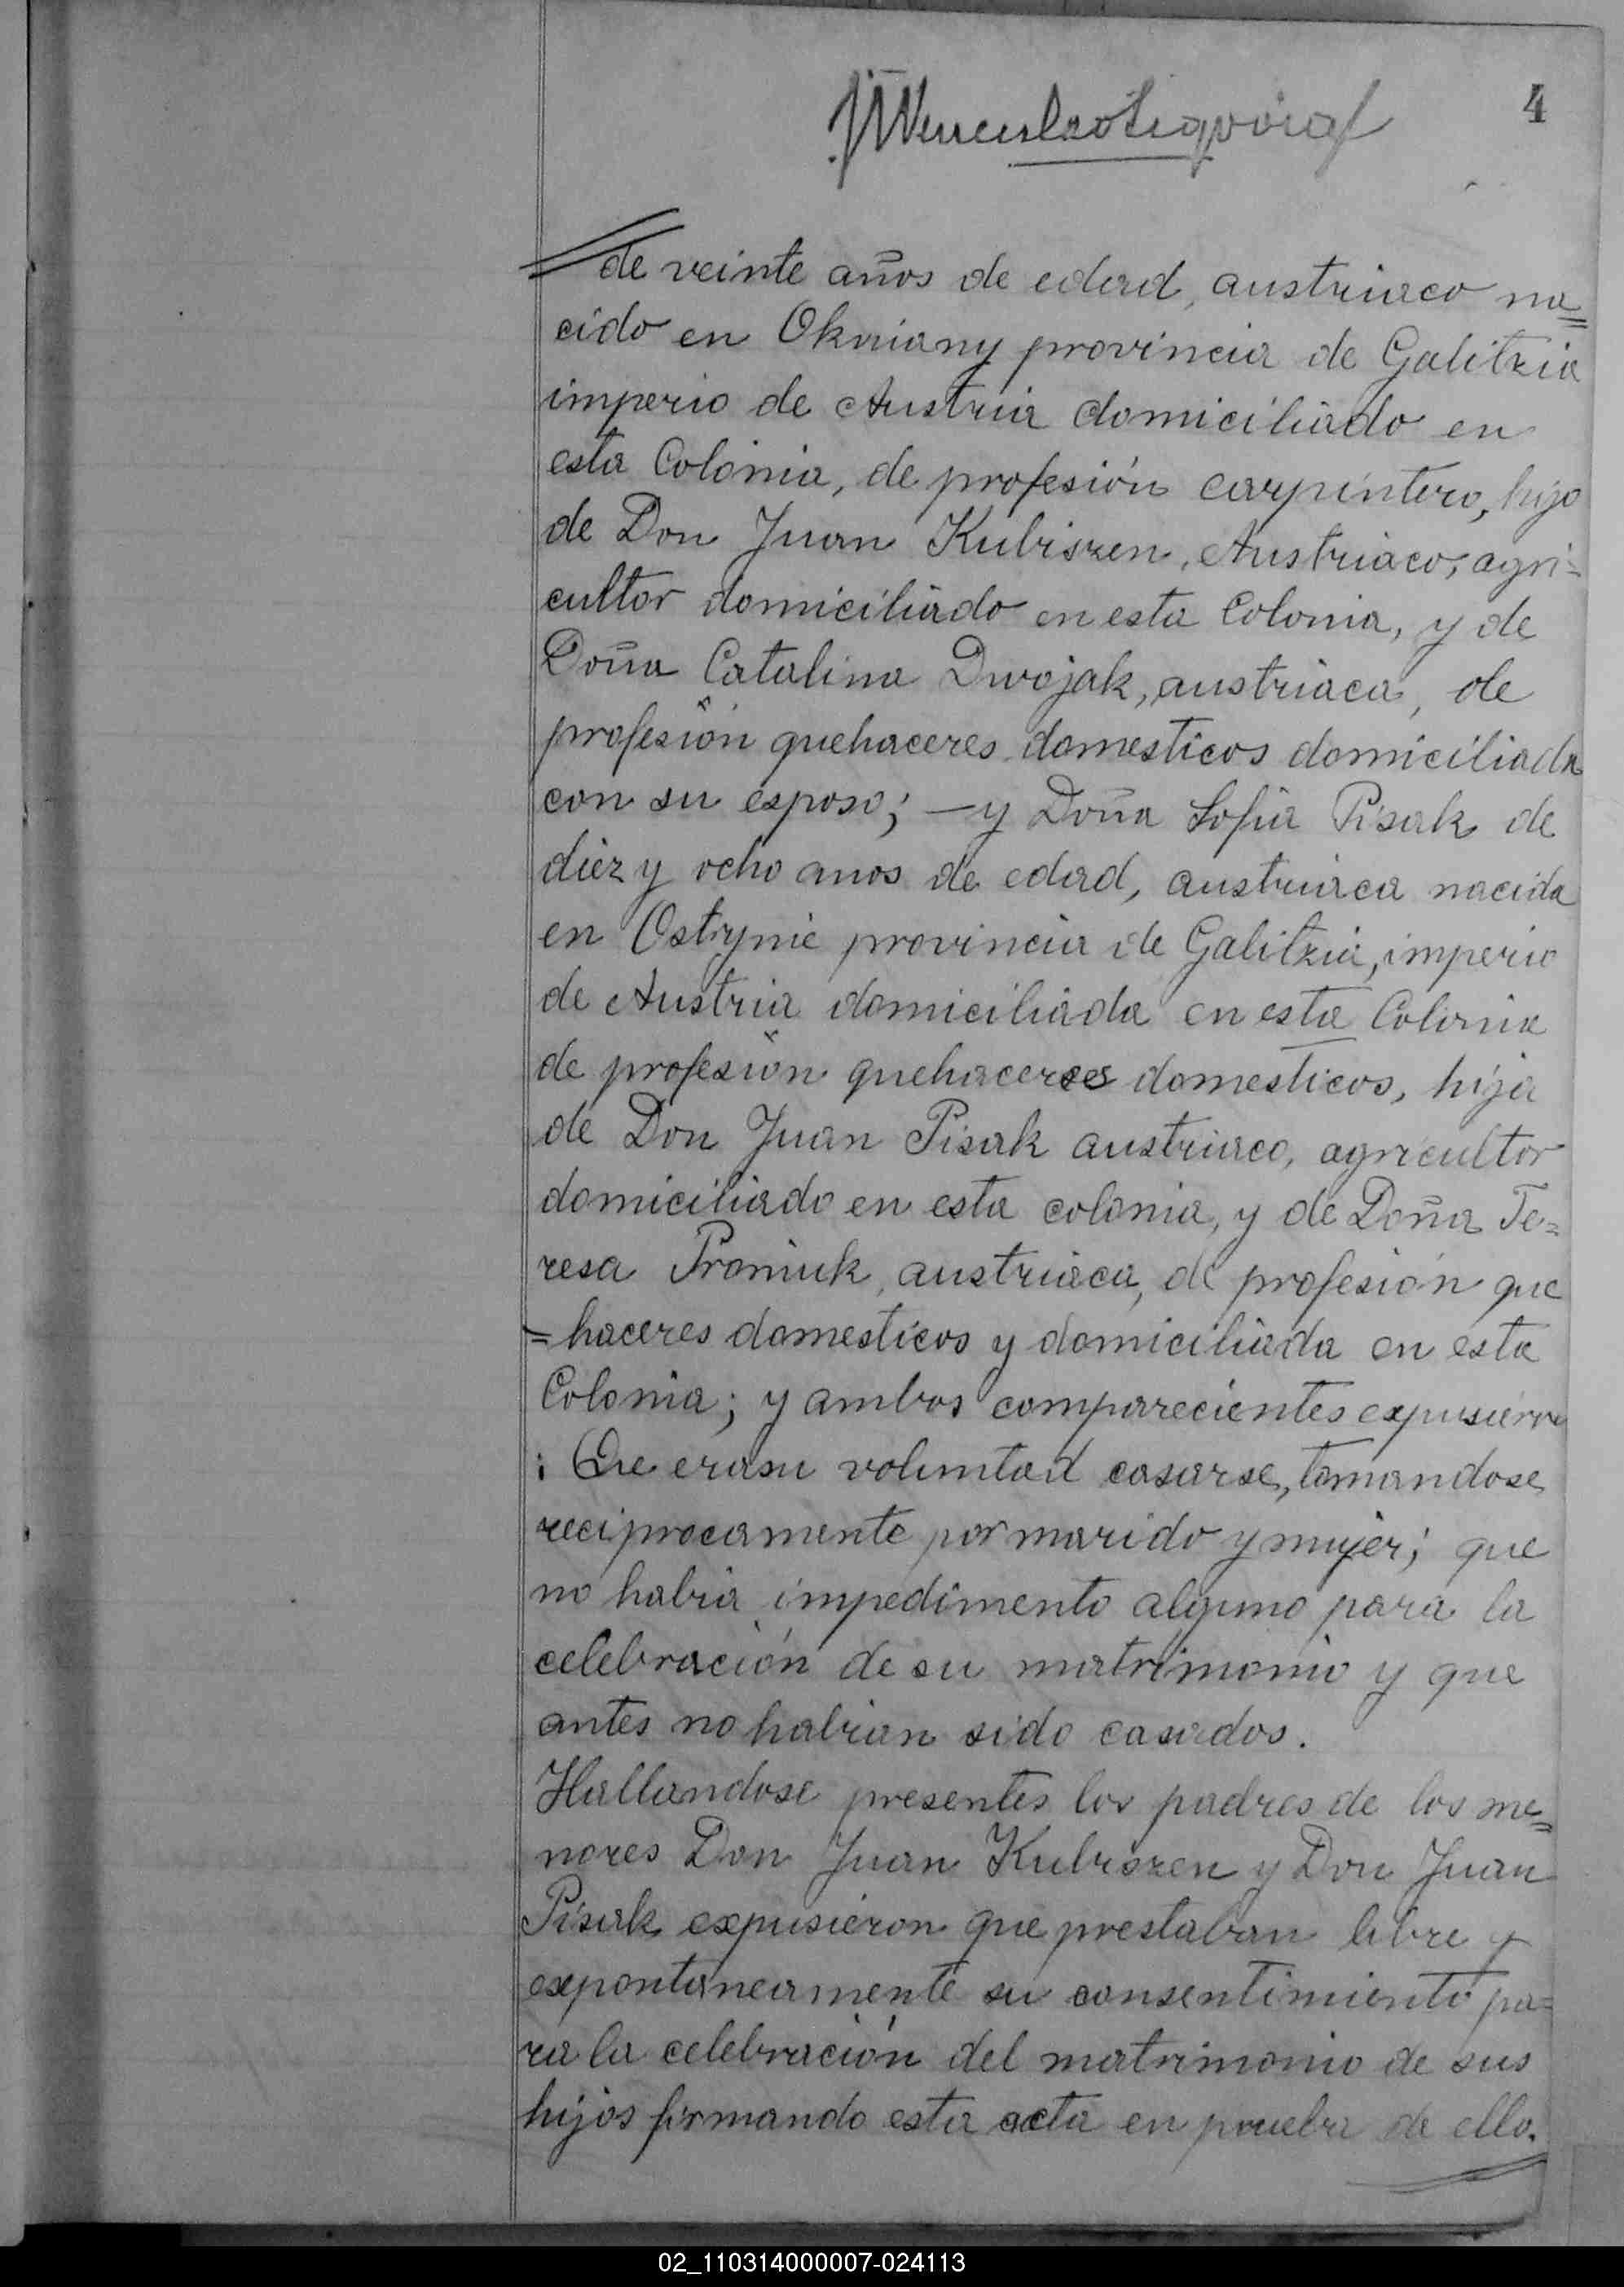 4
de veinte años de edad, austriaco na=
cido en Okniany provincia de Galitzia
imperio de Austria domiciliado en
esta Colonia, de profesión carpintero, hijo
de Don Juan Kubiszen, Austriaco, agri=
cultor domiciliado en esta Colonia, y de
Doña Catalina Dwojak, austriaca, de
profesión quehaceres domesticos domiciliada
con su esposo; — y Doña Sofia Pisak de
diez y ocho anos de edad, austriaca nacida
en Ostrynie provincia de Galitzia, imperio
de Austria domiciliada en esta Colonia
de profesión quehaceres domesticos, hija
de Don Juan Pisak austriaco, agricultor
domiciliado en esta colonia, y de Doña Te=
resa Proniuk, austriaca, de profesión que
=haceres domesticos y domiciliada en esta
Colonia; y ambos comparecientes expusieron
: Que era su voluntad casarse, tomandose
reciprocamente por marido y mujer; que
no habia impedimento alguno para la
celebración de su matrimonio y que
antes no habian sido casados.
Hallandose presentes los padres de los me=
nores Don Juan Kubiszen y Don Juan
Pisak expusieron que prestaban libre y
expontaneamente su consentimiento pa=
ra la celebración del matrimonio de sus
hijos firmando esta acta en prueba de ello.
02_110314000007-024113